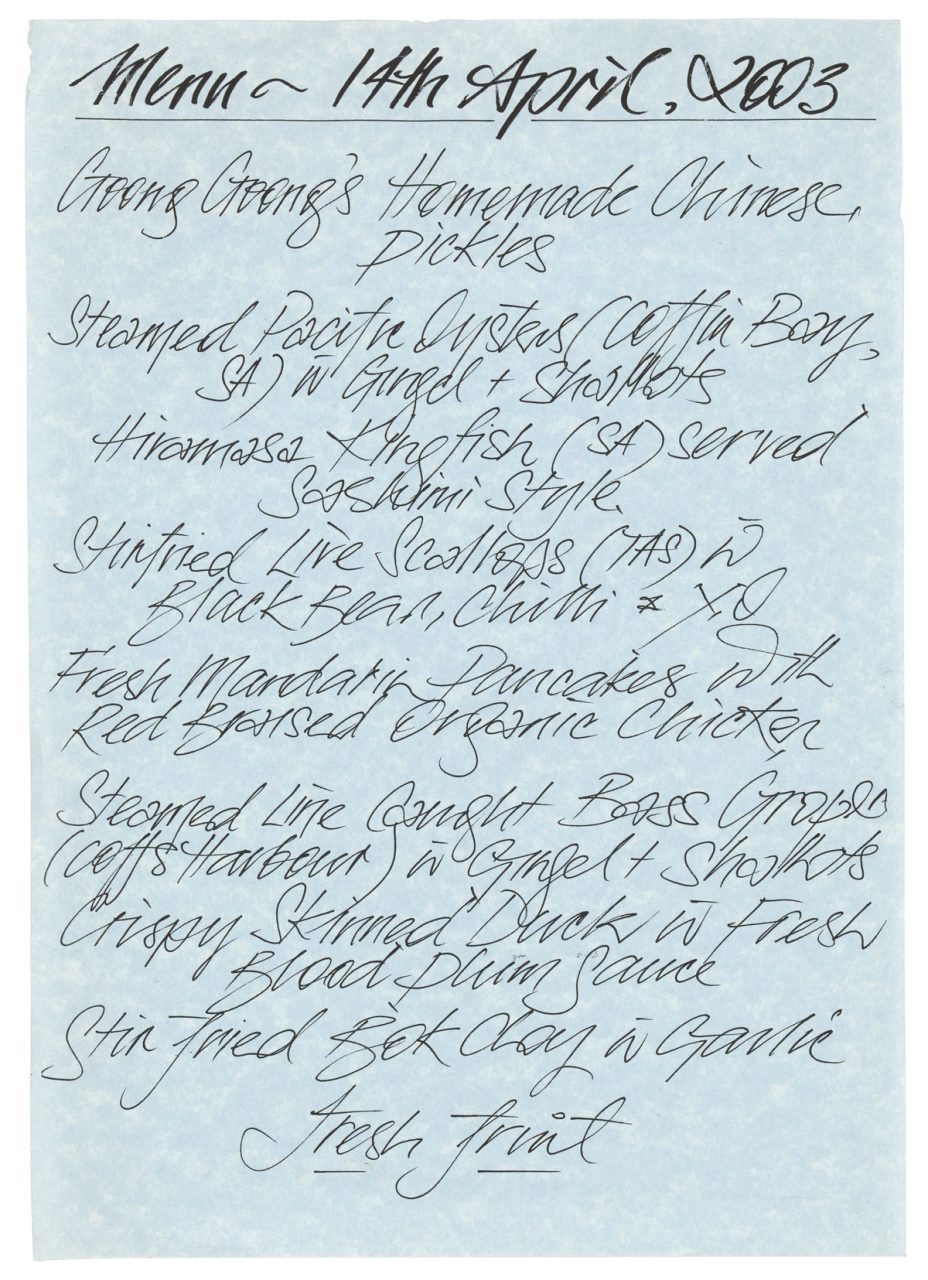 Menu ~ 14th April, 2003
Goong Goong's Homemade Chinese
Pickles
Steamed Pacific Oysters (Coffin Bay,
SA) w̄ Ginger + Shallots
Hiramasa Kingfish (SA) served
Sashimi Style
Stirfried Live Scallops (TAS) w̄
Black Bean, Chilli & XO
Fresh Mandarin Pancakes with
Red Braised Organic Chicken
Steamed Line Caught Bass Groper
(Coffs Harbour) w̄ Ginger + Shallots
Crispy Skinned Duck w̄ Fresh
Blood Plum Sauce
Stir Fried Bok Choy w̄ Garlic
Fresh Fruit